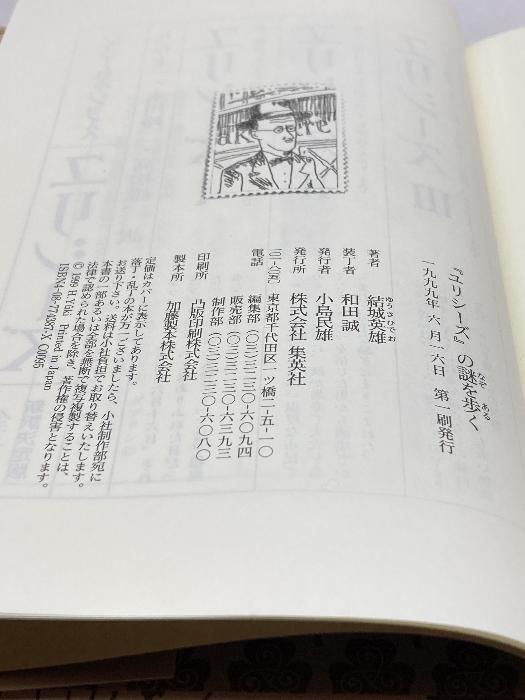 『ユリシーズ』の謎を歩く
なぞ ある
一九九九年 六月一六日 第一刷発行
著者 結城英雄
ゆうきひでお
装丁者 和田 誠
発行者 小島民雄
発行所 株式会社 集英社
東京都千代田区一ツ橋二-五-一〇
一〇一-八〇五〇
電話 編集部 (〇三)三二三〇-六〇九四
販売部 (〇三)三二三〇-六三九三
制作部 (〇三)三二三〇-六〇八〇
印刷所 凸版印刷株式会社
製本所 加藤製本株式会社
定価はカバーに表示してあります。
落丁・乱丁の本が万一ございましたら、小社制作部宛に
お送り下さい。送料は小社負担でお取り替えいたします。
本書の一部あるいは全部を無断で複写複製することは、
法律で認められた場合を除き、著作権の侵害となります。
©1999 H.Yuki Printed in Japan
ISBN4-08-774387-X C0095